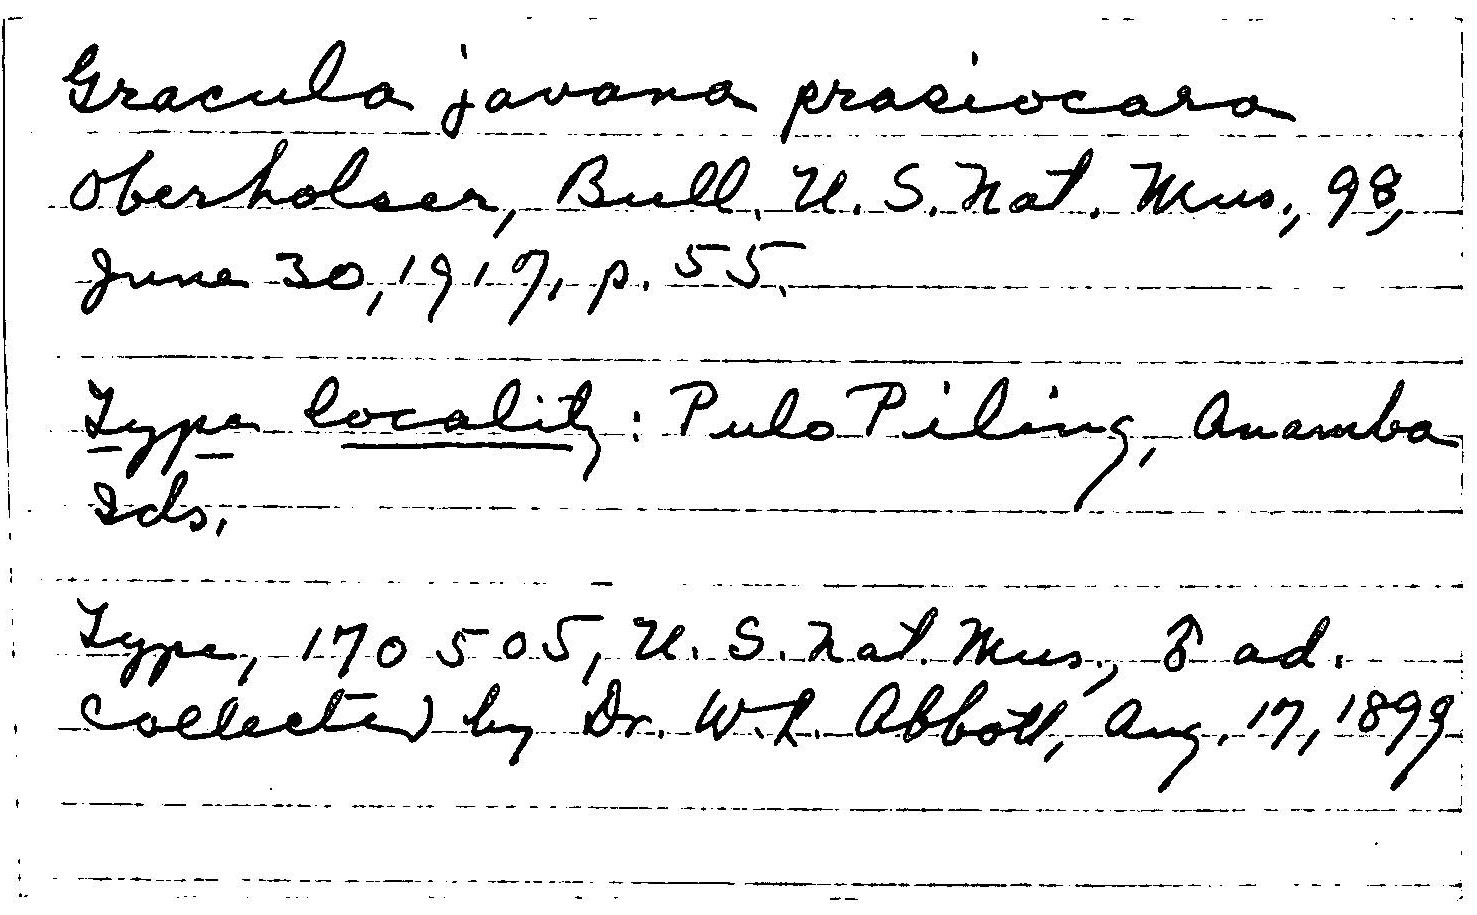 Gracula javana prasiocara
Oberholser, Bull. U. S. Nat. Mus., 98,
June 30, 1917, p. 55.
Type locality: Pulo Piling, Anamba
Ids.
Type, 170505, U. S. Nat. Mus., ♂ ad.
collected by Dr. W. L. Abbott, Aug. 17, 1899